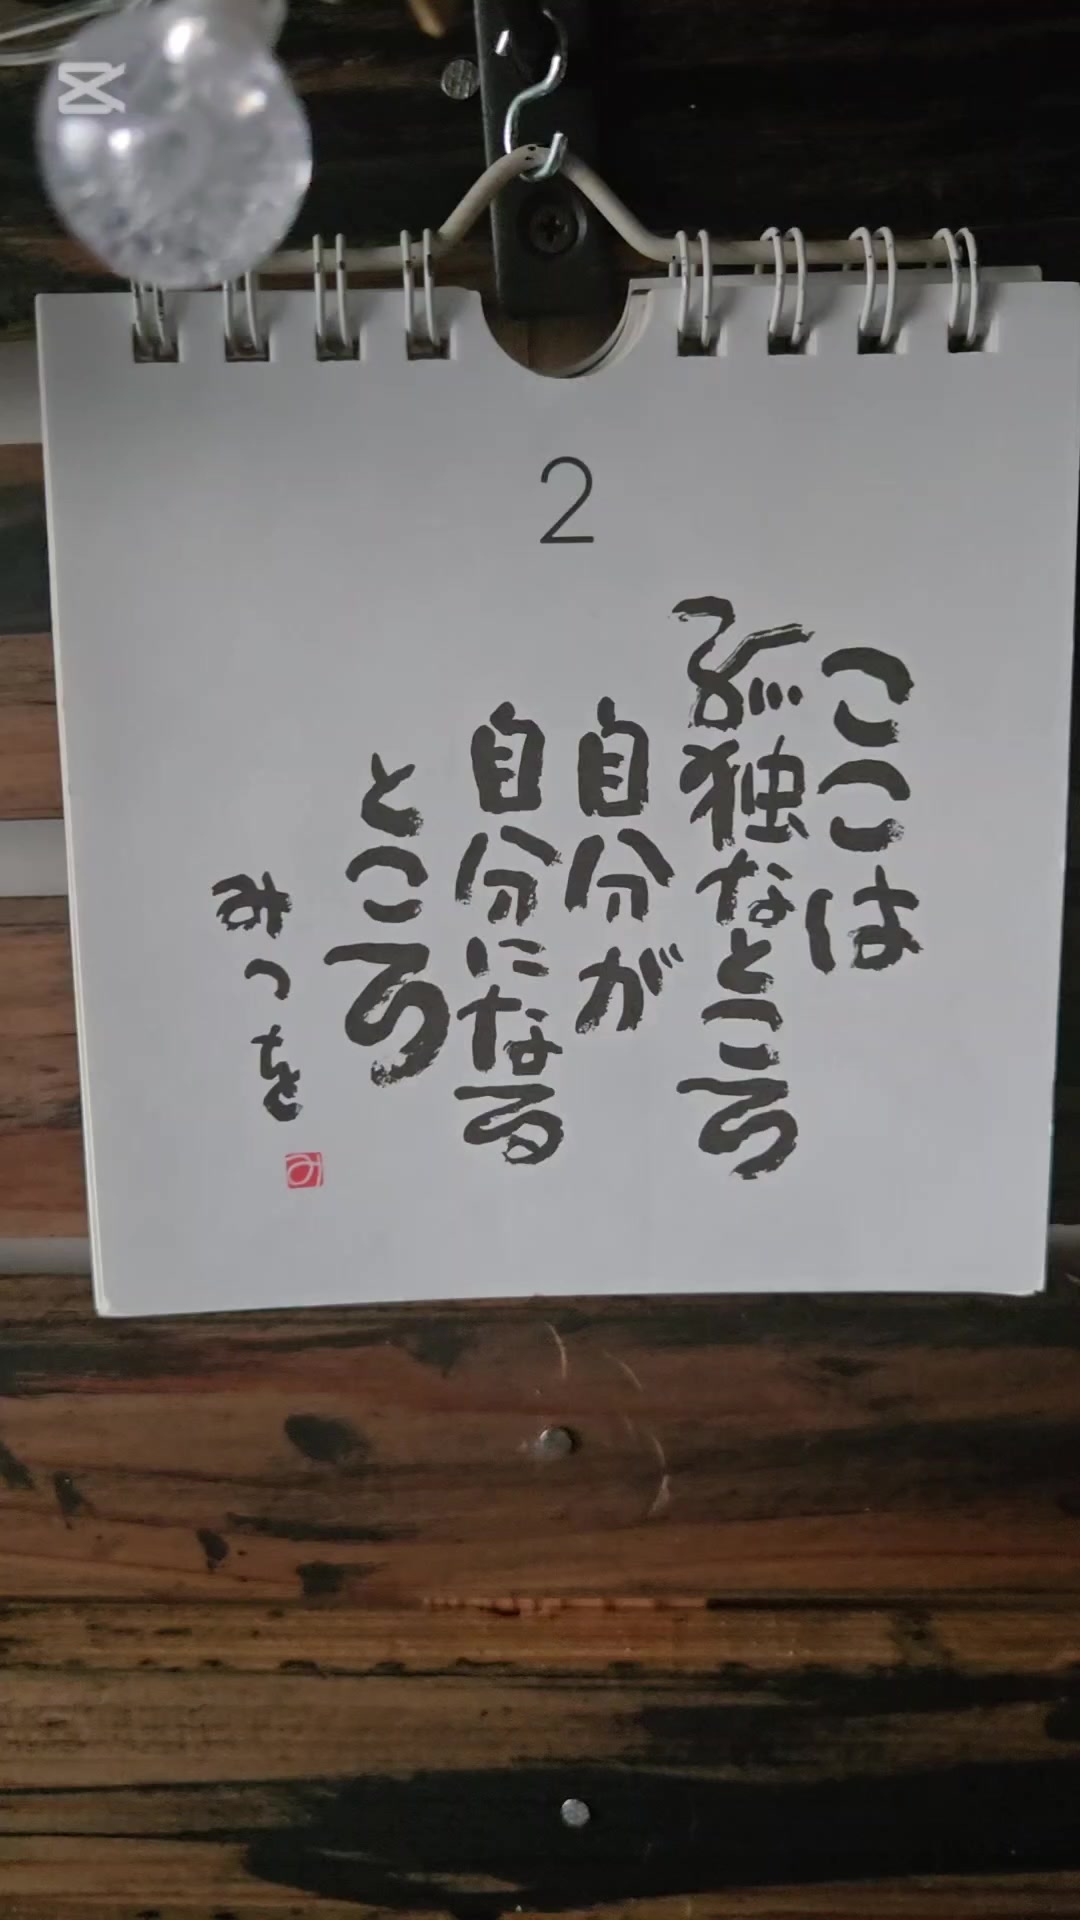 2
ここは
孤独なところ
自分が
自分になる
ところ
みつを
み